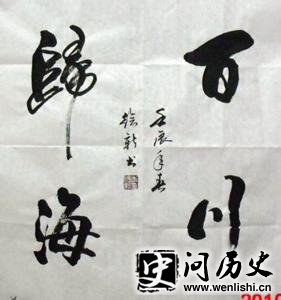 百川
歸海
壬辰年春
绘新书
史问历史
www.wenlishi.cn
2010